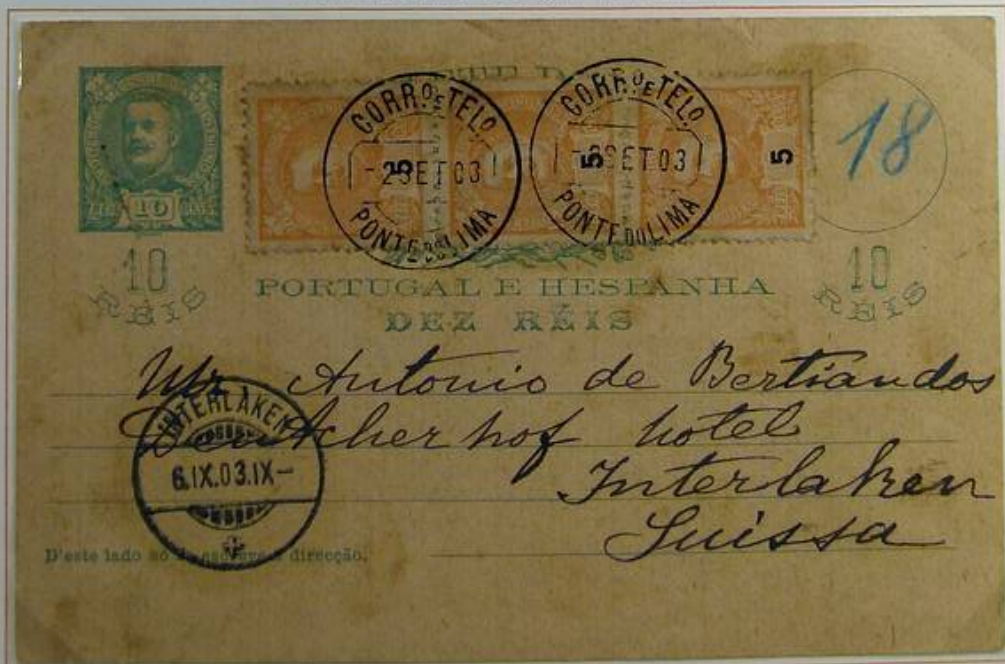 10
CORRO E TELO
-2SET 03
PONTE DO LIMA
5
CORRO E TELO
-2SET 03
PONTE DO LIMA
5
5
18
10
RÉIS
PORTUGAL E HESPANHA
DEZ RÉIS
10
RÉIS
Mr Antonio de Bertiandos
hof hotel
Interlaken
Suissa
INTERLAKEN
6.IX.03.IX-
D'este lado só se escreve a direcção.